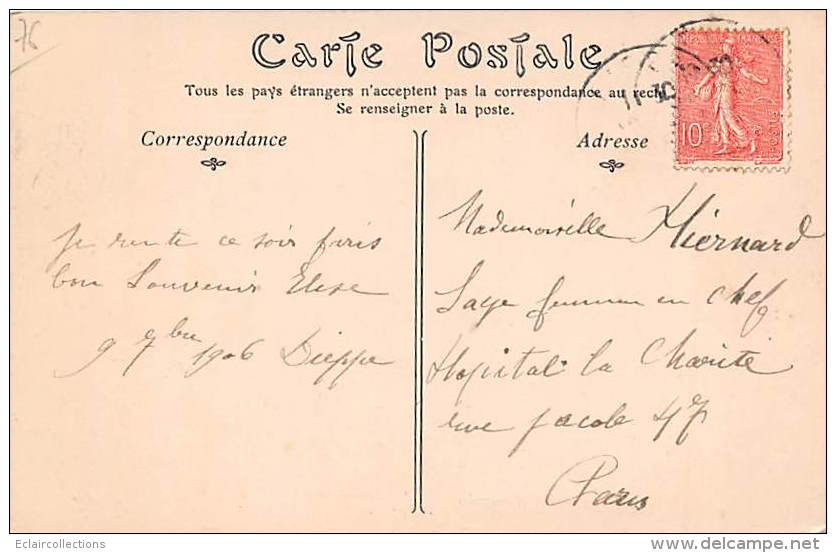 76
Carte Postale
Tous les pays étrangers n'acceptent pas la correspondance au recto
Se renseigner à la poste.
Correspondance
Adresse
RÉPUBLIQUE FRANÇAISE
10c
POSTES
je rente ce soir paris
bon Souvenir Elise
9 7bre 1906 Dieppe
Mademoiselle Hiernard
Sage femme en chef
Hopital la Charité
rue jacob 47
Paris
Eclaircollections
www.delcampe.net